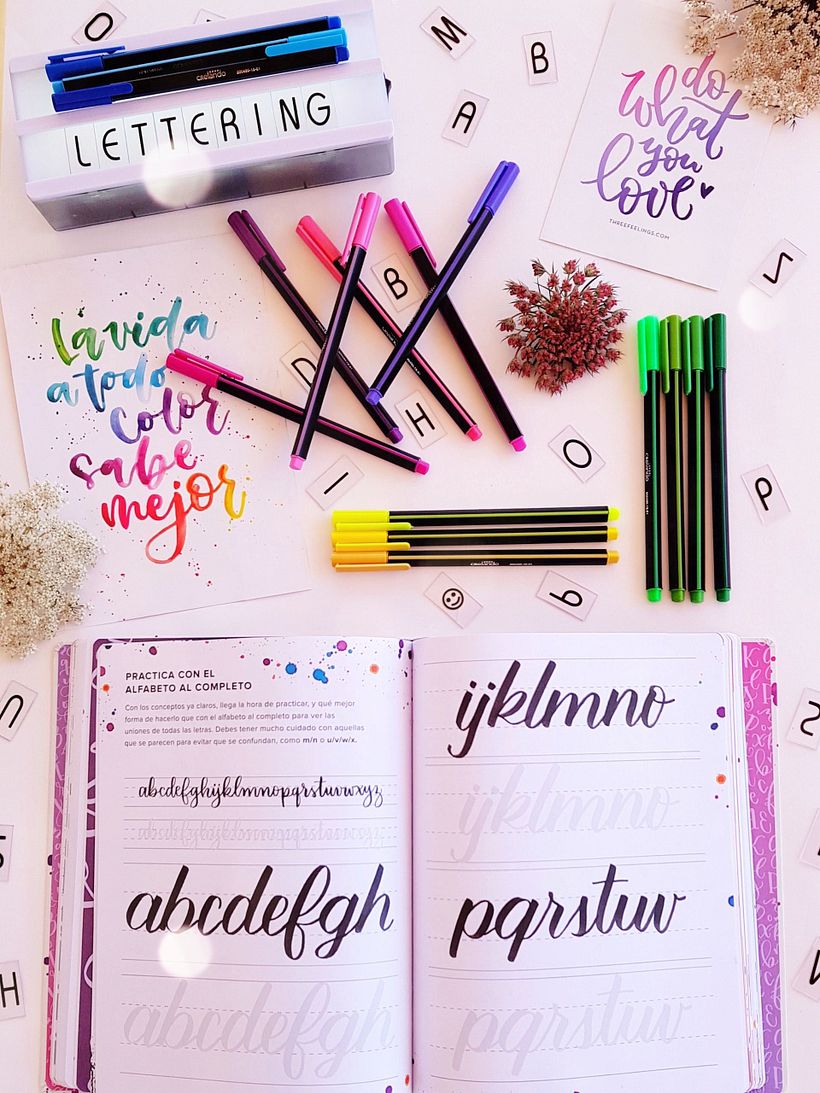 LETTERING
do
what
you
love
THREEFEELINGS.COM
O
M
B
A
La vida
a todo
color
sabe
mejor
B
D
H
I
O
P
PRACTICA CON EL
ALFABETO AL COMPLETO
Con los conceptos ya claros, llega la hora de practicar, y qué mejor
forma de hacerlo que con el alfabeto al completo para ver las
uniones de todas las letras. Debes tener mucho cuidado con aquellas
que se parecen para evitar que se confundan, como m/n o u/v/w/x.
abcdefghijklmnopqrstuvwxyz
abcdefghijklmnopqrstuvwxyz
abcdefgh
abcdefgh
ijklmno
ijklmno
pqrstuv
pqrstuv
H